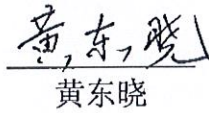 黄东晓
黄东晓